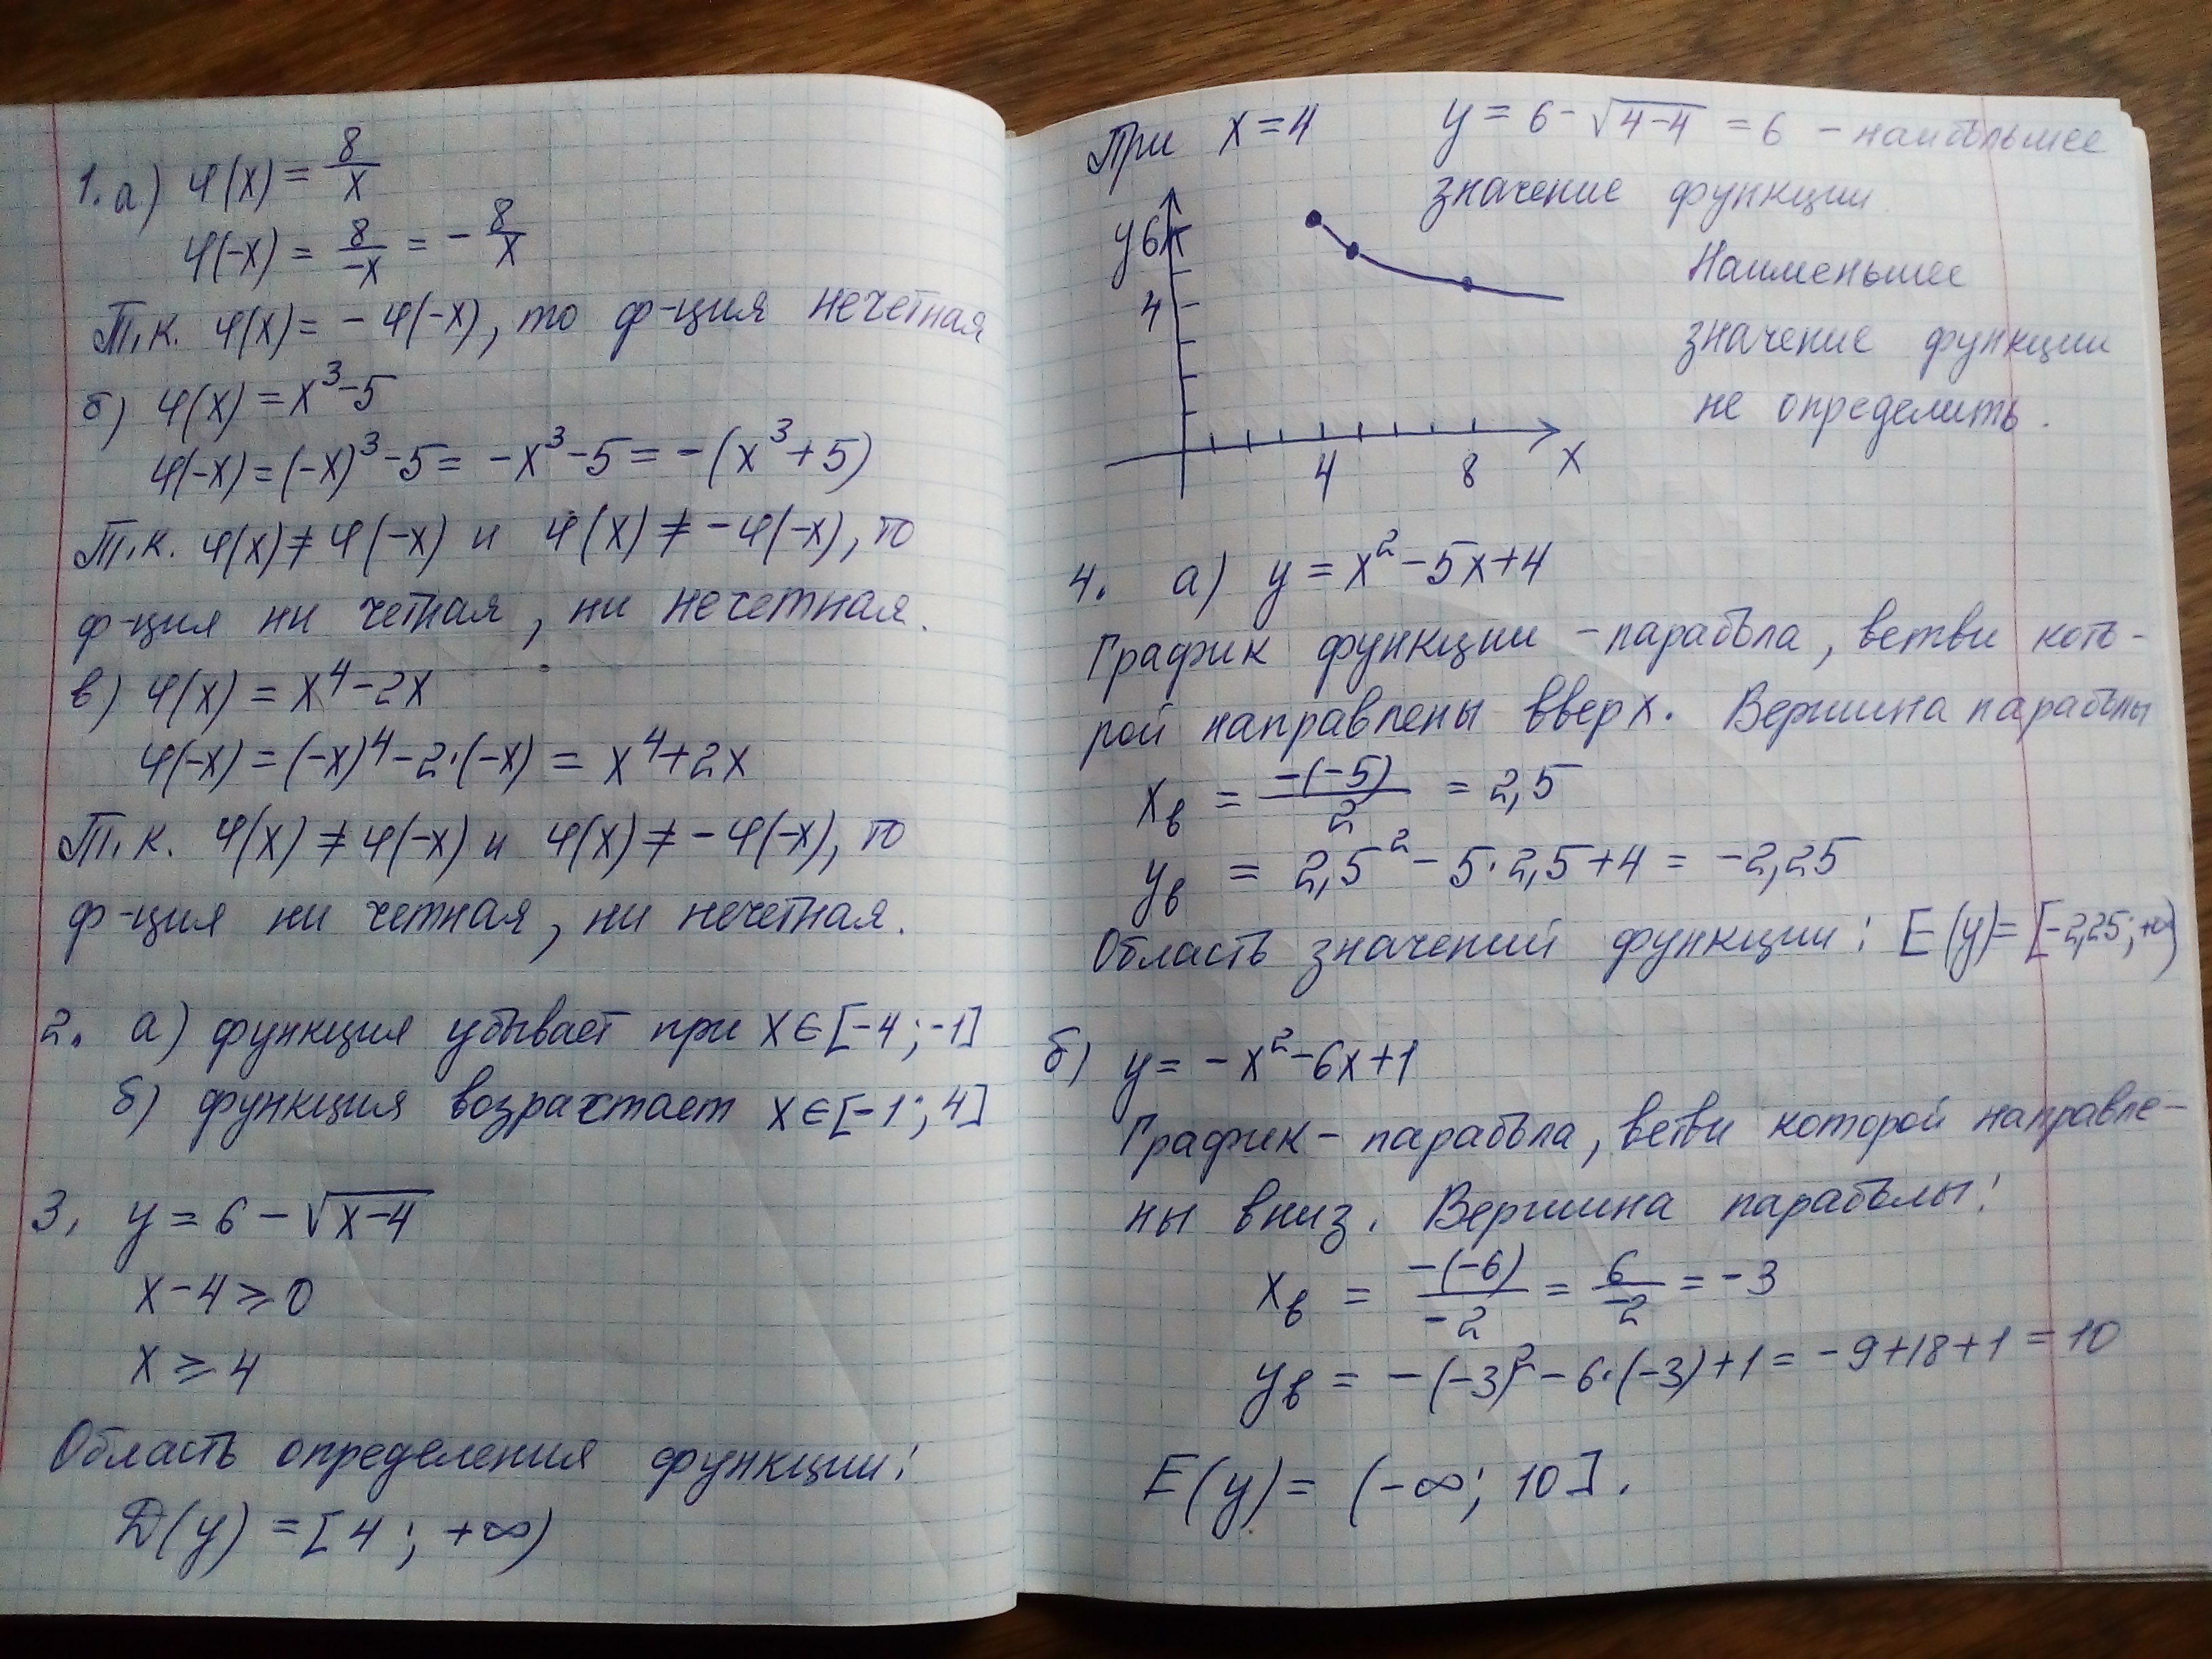 1. а) φ(x) = 8/x
φ(-x) = 8/-x = - 8/x
Т.к. φ(x) = - φ(-x), то ф-ция нечетная
б) φ(x) = x³-5
φ(-x) = (-x)³-5 = -x³-5 = -(x³+5)
Т.к. φ(x) ≠ φ(-x) и φ(x) ≠ - φ(-x), то
ф-ция ни четная, ни нечетная.
в) φ(x) = x⁴-2x
φ(-x) = (-x)⁴-2·(-x) = x⁴+2x
Т.к. φ(x) ≠ φ(-x) и φ(x) ≠ - φ(-x), то
ф-ция ни четная, ни нечетная.
2. а) функция убывает при x∈[-4; -1]
б) функция возрастает x∈[-1; 4]
3. y = 6 - √(x-4)
x-4 ≥ 0
x ≥ 4
Область определения функции:
D(y) = [4; +∞)
При x=4 y = 6 - √(4-4) = 6 - наибольшее
значение функции.
Наименьшее
значение функции
не определить.
y 6
4
4 8 x
4. а) y = x²-5x+4
График функции - парабола, ветви кото-
рой направлены вверх. Вершина параболы
xв = -(-5)/2 = 2,5
yв = 2,5²-5·2,5+4 = -2,25
Область значений функции: E(y)=[-2,25; +∞)
б) y = -x²-6x+1
График - парабола, ветви которой направле-
ны вниз. Вершина параболы:
xв = -(-6)/-2 = 6/-2 = -3
yв = -(-3)²-6·(-3)+1 = -9+18+1 = 10
E(y) = (-∞; 10].